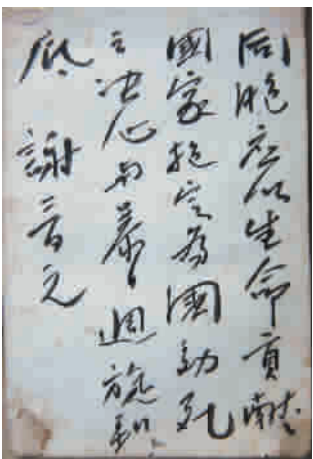 同胞应以生命貢献
國家抱定為國効死
之决心与暴日週旋到
底 謝晋元